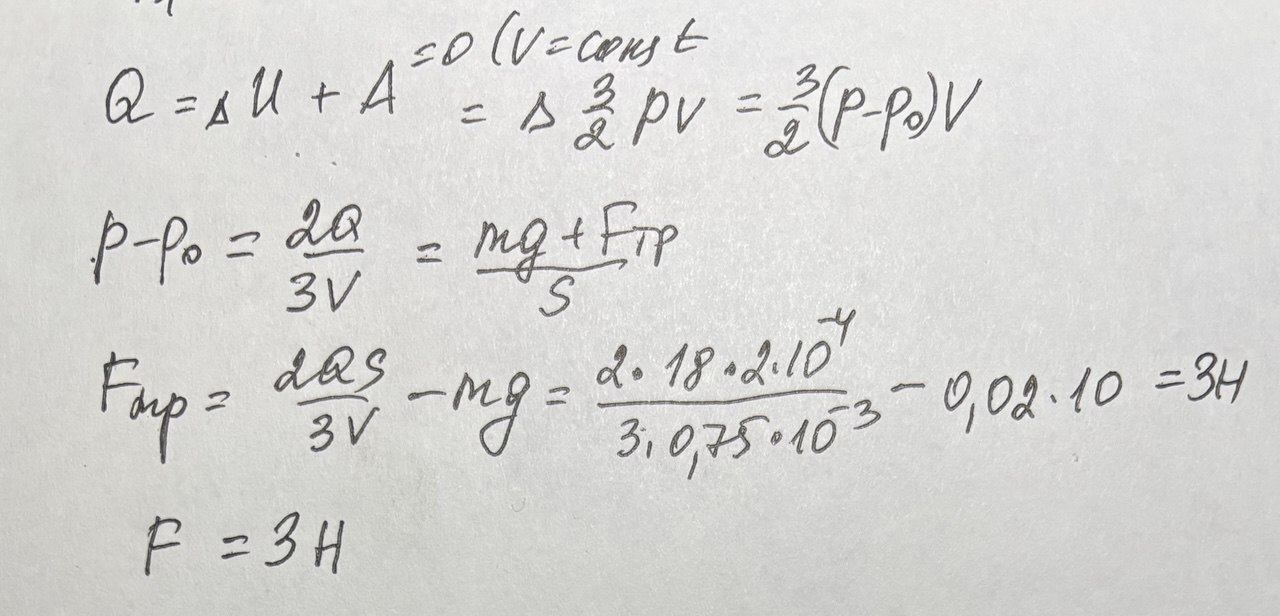 Q = Δ U + A =0 (V=const = Δ 3/2 pV = 3/2 (p-p₀)V
p-p₀ = 2Q/3V = (mg + Fтр)/S
Fтр = 2QS/3V - mg = (2·18·2·10⁻⁴)/(3·0,75·10⁻³) - 0,02·10 = 3Н
F = 3Н